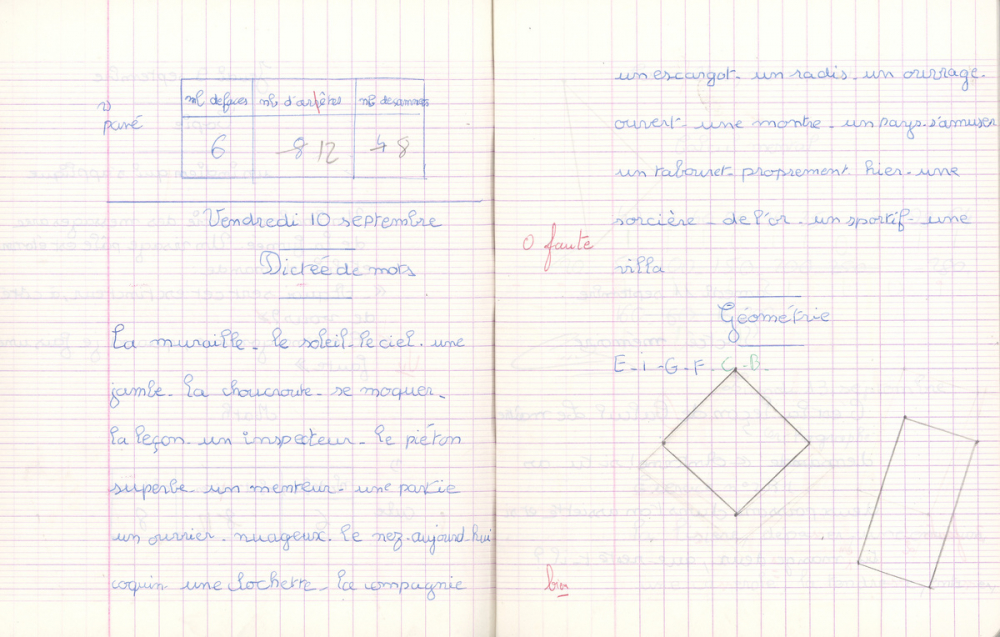 nb de faces nb d'arrêtes nb de sommets
pavé 6 8 12 4 8
Vendredi 10 septembre
Dictée de mots
La muraille - le soleil - le ciel - une
jambe - la choucroute - se moquer -
la leçon - un inspecteur - le piéton
superbe - un menteur - une partie
un ouvrier - nuageux - le nez - aujourd'hui
coquin une clochette - la compagnie
un escargot - un radis - un ouvrage -
ouvert - une montre - un pays - s'amuser
un tabouret - proprement hier - une
sorcière - de l'or - un sportif - une
0 faute
villa
Géométrie
E - i - G - F - C - B -
bien